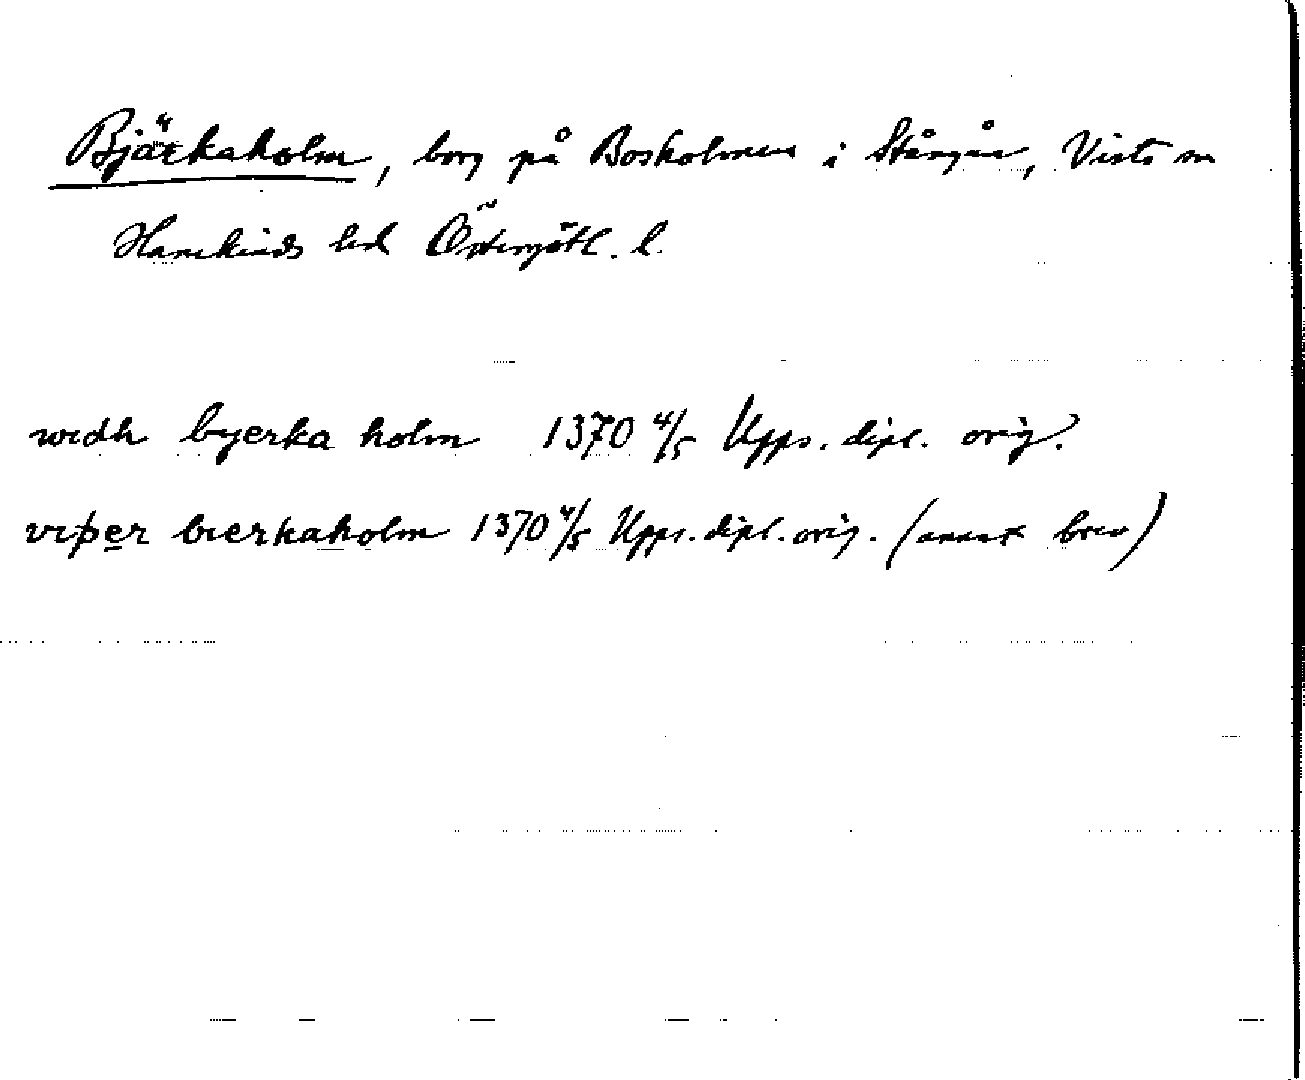 Bjärkaholm, borg på Bosholmen i Stångån, Vists sn
Hanekinds hd Östergötl. l.
widh byerka holm 1370 4/5 Upps. dipl. orig.
viþer bierkaholm 1370 4/5 Upps. dipl. orig. (annat brev)